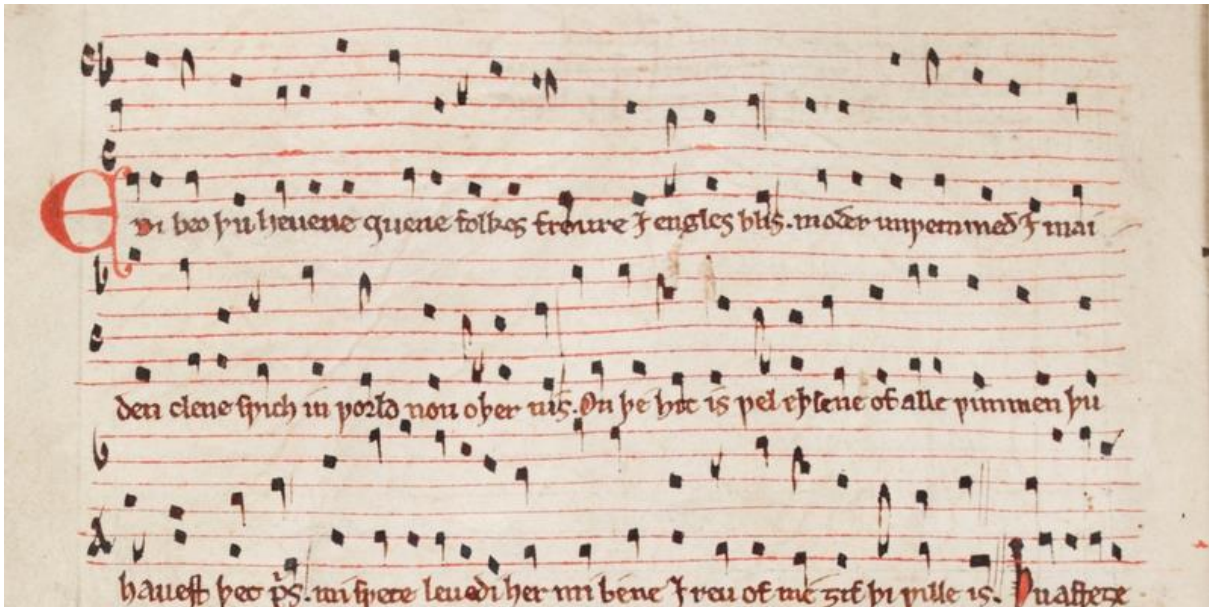 Edi beo þu heuene quene folkes froure ⁊ engles blis. moder unƿemmed ⁊ mai
den clene sƿich in ƿorld non oþer nis. On þe hit is ƿel eþsene of alle ƿimmen þu
hauest þet pris. mi sƿete leuedi her mi bene ⁊ reu of me ȝif þi ƿille is. Þu asteȝe